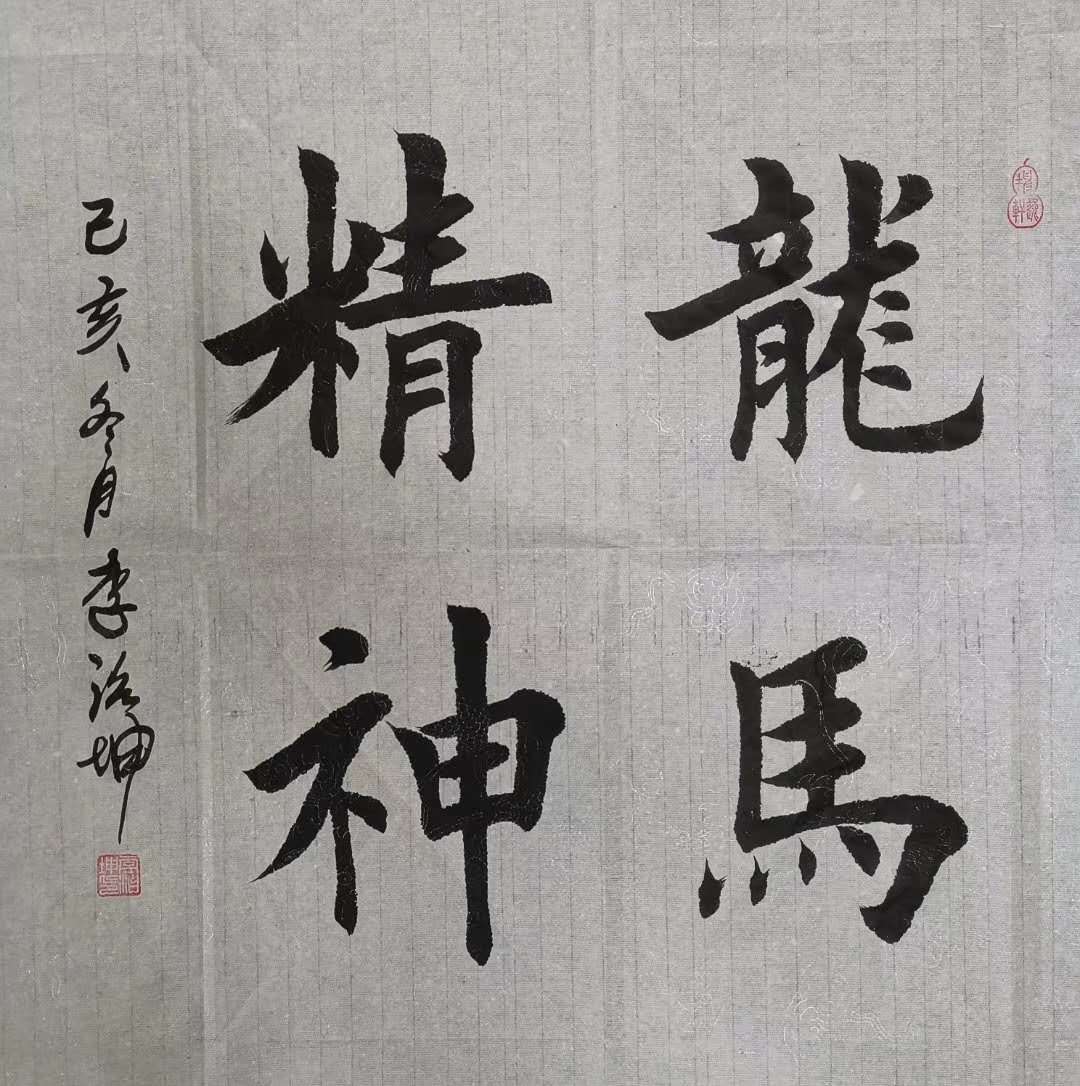 龍馬
精神
己亥冬月李治坤